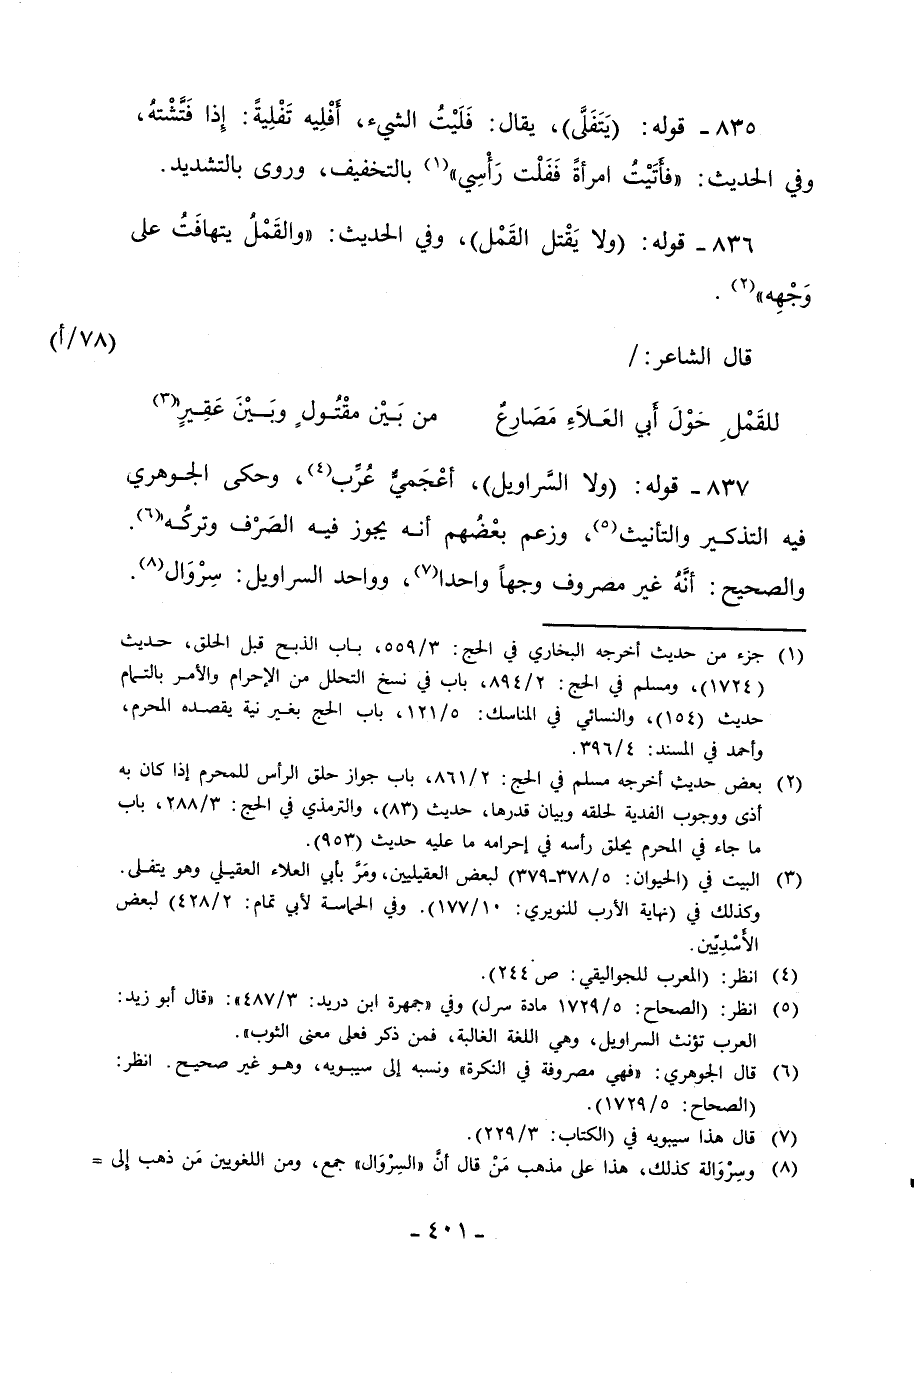 ٨٣٥ ـ قوله: (يَتَفَلَّى)، يقال: فَلَيْتُ الشيء، أَفْلِيه تَفْلِيةً: إِذا فَتَّشْتهُ،
وفي الحديث: «فأَتَيْتُ امرأةً فَفَلْت رَأْسِي»(١) بالتخفيف، وروى بالتشديد.
٨٣٦ ـ قوله: (ولا يَقْتل القَمْل)، وفي الحديث: «والقَمْلُ يتهافَتُ على
وَجْهِه»(٢).
(٧٨/أ)
قال الشاعر: /
للقَمْلِ حَوْلَ أَبي العَلاَءِ مَصَارِعٌ من بَيْن مقْتُولٍ وبَيْنَ عَقِيرِ(٣)
٨٣٧ ـ قوله: (ولا السَّراويل)، أعْجَميٌّ عُرِّب(٤)، وحكى الجوهري
فيه التذكير والتأنيث(٥)، وزعم بعْضُهم أنه يجوز فيه الصَرْف وتركُه(٦).
والصحيح: أنَّهُ غير مصروف وجهاً واحدا(٧)، وواحد السراويل: سِرْوَال(٨).
(١) جزء من حديث أخرجه البخاري في الحج: ٥٥٩/٣، باب الذبح قبل الحلق، حديث
(١٧٢٤)، ومسلم في الحج: ٨٩٤/٢، باب في نسخ التحلل من الإحرام والأمر بالتمام
حديث (١٥٤)، والنسائي في المناسك: ١٢١/٥، باب الحج بغير نية يقصده المحرم،
وأحمد في المسند: ٣٩٦/٤.
(٢) بعض حديث أخرجه مسلم في الحج: ٨٦١/٢، باب جواز حلق الرأس للمحرم إذا كان به
أذى ووجوب الفدية لحلقه وبيان قدرها، حديث (٨٣)، والترمذي في الحج: ٢٨٨/٣، باب
ما جاء في المحرم يحلق رأسه في إحرامه ما عليه حديث (٩٥٣).
(٣) البيت في (الحيوان: ٣٧٨/٥ـ٣٧٩) لبعض العقيليين، ومَرَّ بأبي العلاء العقيلي وهو يتفلى.
وكذلك في (نهاية الأرب للنويري: ١٧٧/١٠). وفي الحماسة لأبي تمام: ٤٢٨/٢) لبعض
الأَسْدِيّين.
(٤) انظر: (المعرب للجواليقي: ص ٢٤٤).
(٥) انظر: (الصحاح: ١٧٢٩/٥ مادة سرل) وفي «جمهرة ابن دريد: ٤٨٧/٣»: «قال أبو زيد:
العرب تؤنث السراويل، وهي اللغة الغالبة، فمن ذكر فعلى معنى الثوب».
(٦) قال الجوهري: «فهي مصروفة في النكرة» ونسبه إلى سيبويه، وهو غير صحيح. انظر:
(الصحاح: ١٧٢٩/٥).
(٧) قال هذا سيبويه في (الكتاب: ٢٢٩/٣).
(٨) وسِرْوَالة كذلك، هذا على مذهب مَنْ قال أنَّ «السِرْوَال» جمع، ومن اللغويين مَن ذهب إلى =
ـ ٤٠١ ـ